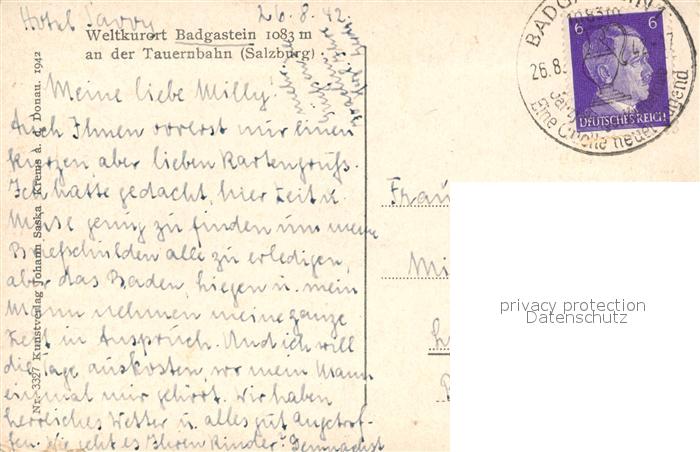 Hotel Savoy 26.8.42.
Weltkurort Badgastein 1083 m
an der Tauernbahn (Salzburg)
Meine liebe Milly!
Auch Ihnen vorerst nur einen
kurzen, aber lieben Kartengruß.
Ich hatte gedacht, hier Zeit u.
Muse genug zu finden um meine
Briefschulden alle zu erledigen,
aber das Baden, liegen u. mein
Mann nehmen meine ganze
Zeit in Anspruch. Und ich will
die Tage auskosten, wo mein Mann
einmal mir gehört. Wir haben
herrliches Wetter u. alles gut angetrof-
fen. Wie geht es Ihren Kinder? Demnächst
Nr. 3327 Kunstverlag Johann Saska Krems a. d. Donau. 1942
BADGASTEIN 1
1083m
26.8.
Eine Quelle neuer Jugend
6 6
DEUTSCHES REICH
Frau
Mi
privacy protection
Datenschutz